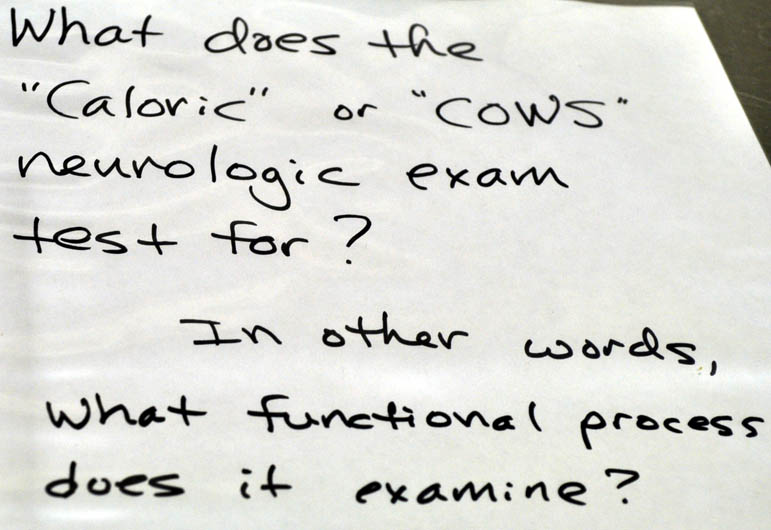 What does the
"Caloric" or "COWS"
neurologic exam
test for?
In other words,
what functional process
does it examine?